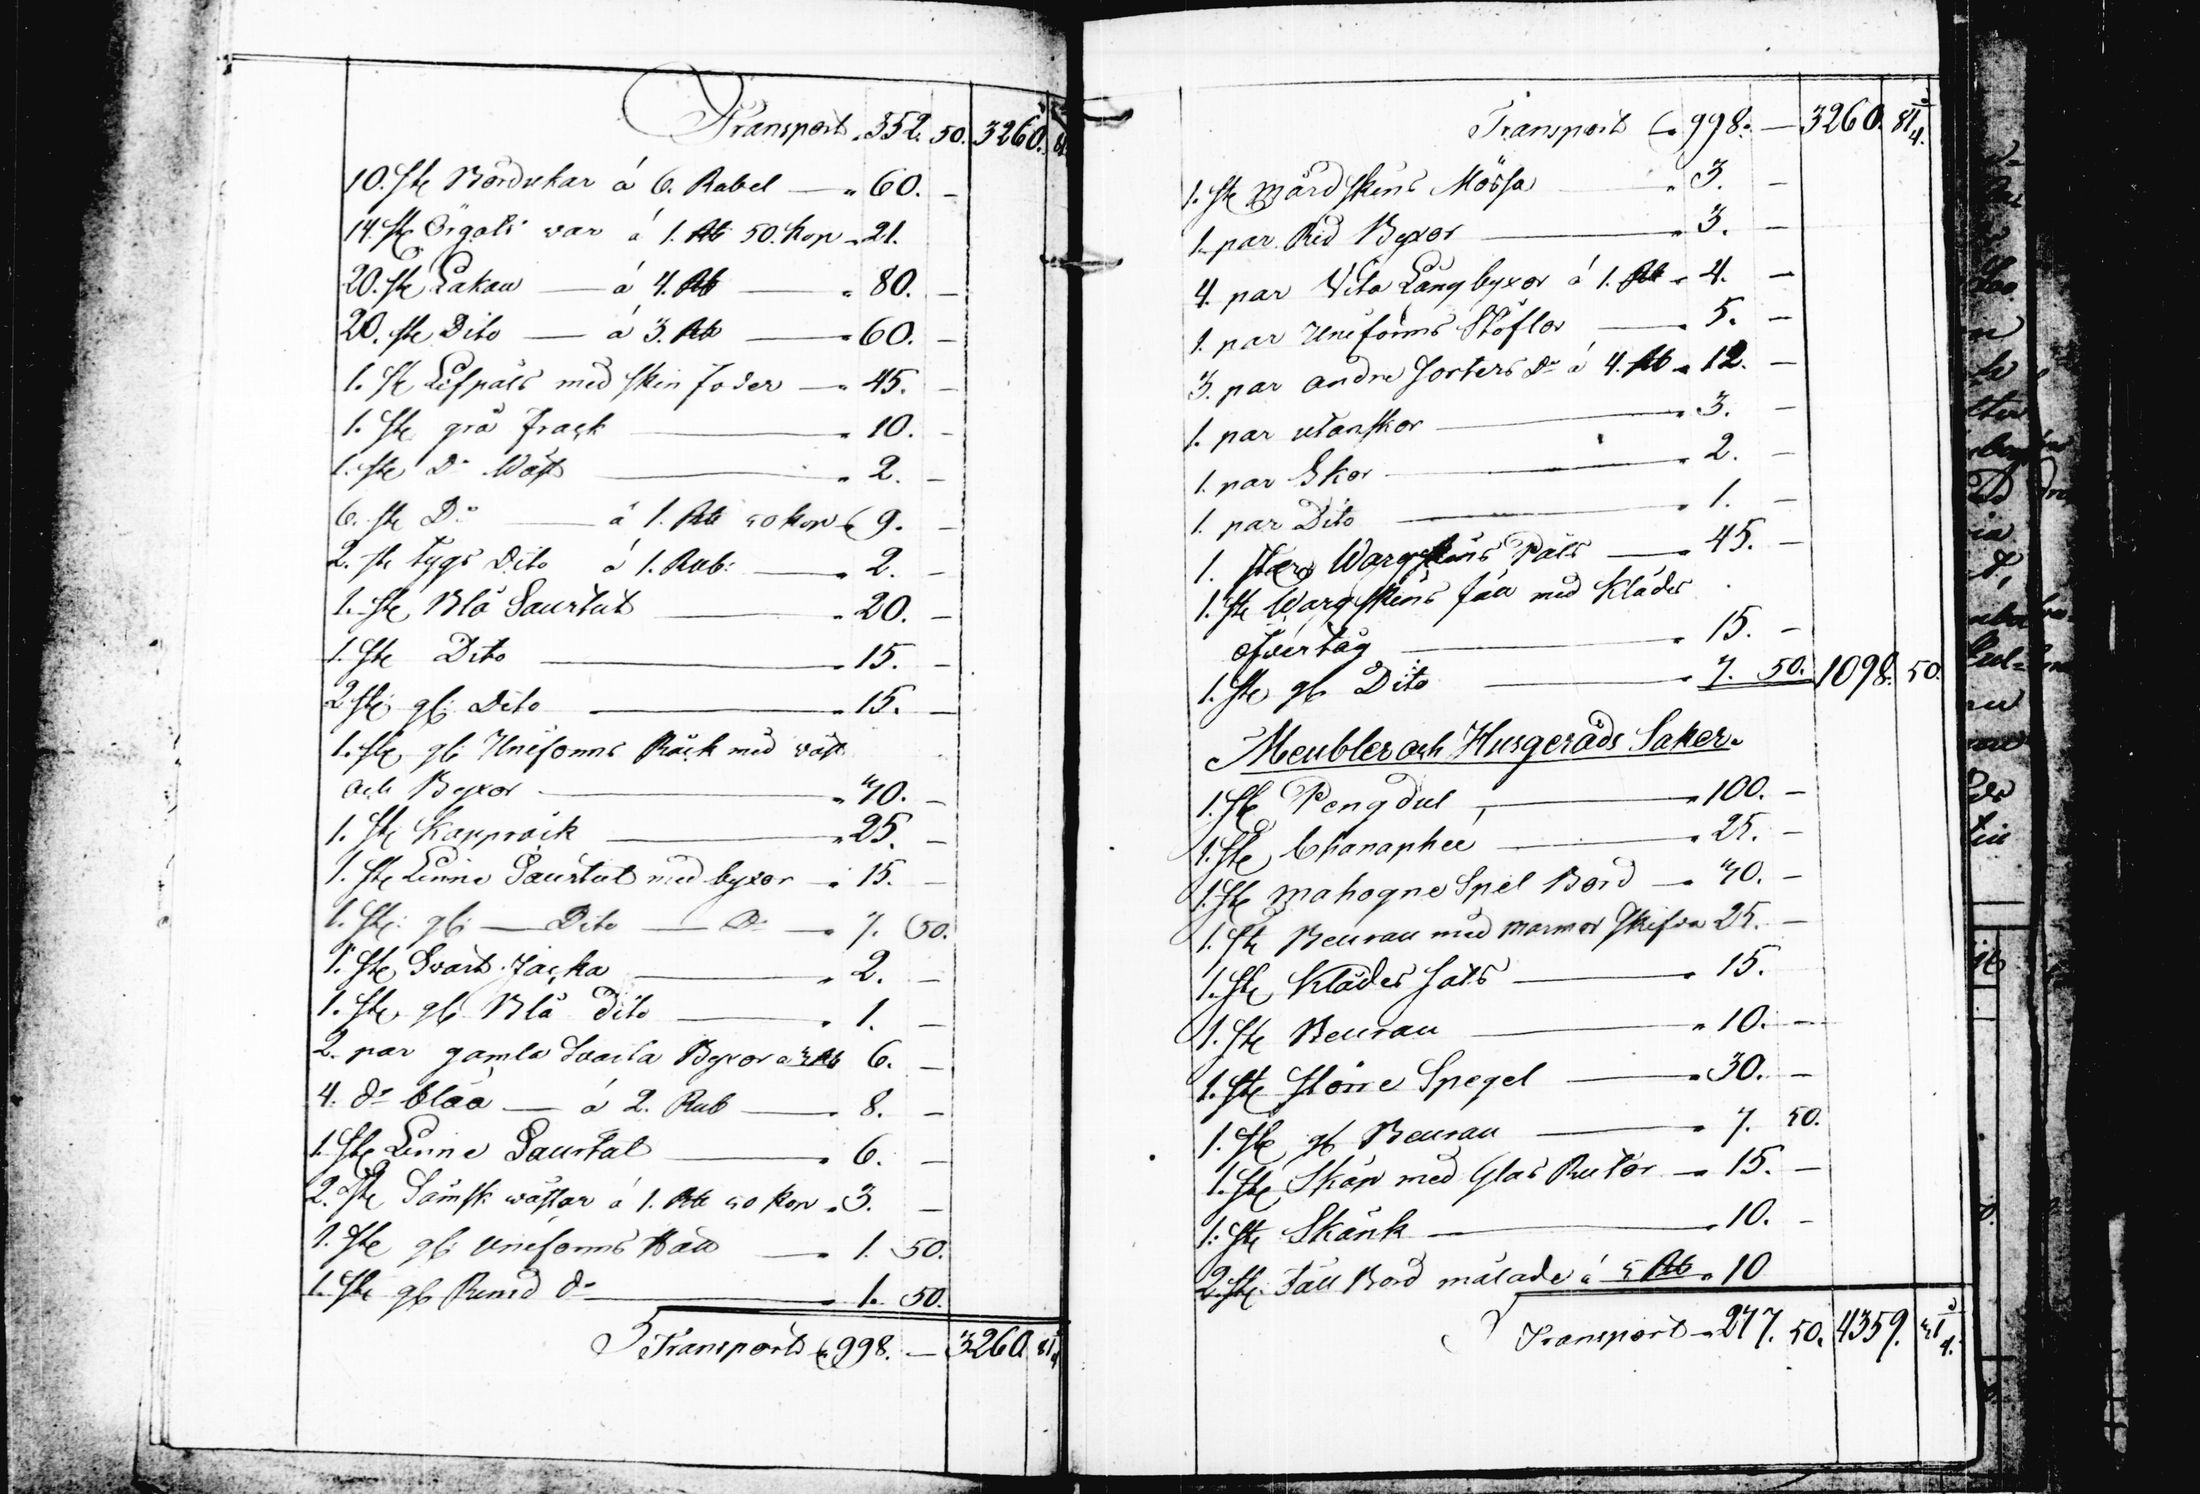 Transport „ 352. 50. 3260.
10. st. Bordukar á 6. Rubel — „ 60. —
14. st. Örgots var á 1. Rb 50. kop „ 21.
20. st. Lakan — á 4. Rb — „ 80. —
20. st. Dito — á 3. Rb — „ 60. —
1. st. Lifpäls med skin foder — „ 45. —
1. st. grå frack — „ 10. —
1. st. Do Wäst — „ 2. —
6. st. Do — á 1. Rb 50 kop „ 9. —
2. st. tygs Dito á 1. Rub: — „ 2. —
1. st. Blå Sourtut — „ 20. —
1. st. Dito — „ 15. —
2. st. gl: Dito — „ 15. —
1. st. gl: Uniforms Råck med väst
och Byxor — „ 40. —
1. st. Kappråck — „ 25. —
1. st. Linne Sourtut med byxor — „ 15. —
1. st. gl: — Dito — Do — „ 7. 50.
1. st. Svart Jacka — „ 2. —
1. st. gl. Blå dito — „ 1. —
2. par gamla Svarta Byxor á 3 Rb 6. —
4. do blåa — á 2. Rub — „ 8. —
1. st. Linne Sourtut — „ 6. —
2. st. Sämsk wästar á 1. Rb 50 kop „ 3. —
1. st. gl: uniforms Hatt — „ 1. 50.
1. st. gl. Rund do — „ 1. 50.
Transport „ 998. — 3260.
Transport „ 998. — 3260. 81 3/4.
1. st. Mårdskins Mössa „ 3. —
1. par Rid Byxor — „ 3. —
4. par Vita Långbyxor á 1. Rb „ 4. —
1. par Uniforms Stöflor — „ 5. —
3. par andre sorters do á 4. Rb „ 12. —
1. par utanskor — „ 3. —
1. par Skor — „ 2. —
1. par Dito — „ 1. —
1. Wargskins Päls — „ 45. —
1. st. Wargskins fäll med Klädes
öfvertåg — „ 15. —
1. st. gl. Dito — „ 7. 50. 1098. 50.
Meubler och Husgeråds Saker.
1. st. Pengdul — „ 100. —
1. st. Chanaphee — „ 25. —
1. st. Mahogne Spel Bord — „ 40. —
1. st. Beurau med marmor skifva 25. —
1. st. Klädes skåp — „ 15.
1. st. Beurau — „ 10. —
1. st. större Spegel — „ 30. —
1. st. gl. Beurau — „ 7. 50.
1. st. Skåp med Glas Rutor — „ 15. —
1. st. Skänk — „ 10. —
2. st. Fäll Bord målade á 5 Rb „ 10
Transport „ 277. 50. 4359. 31 3/4.